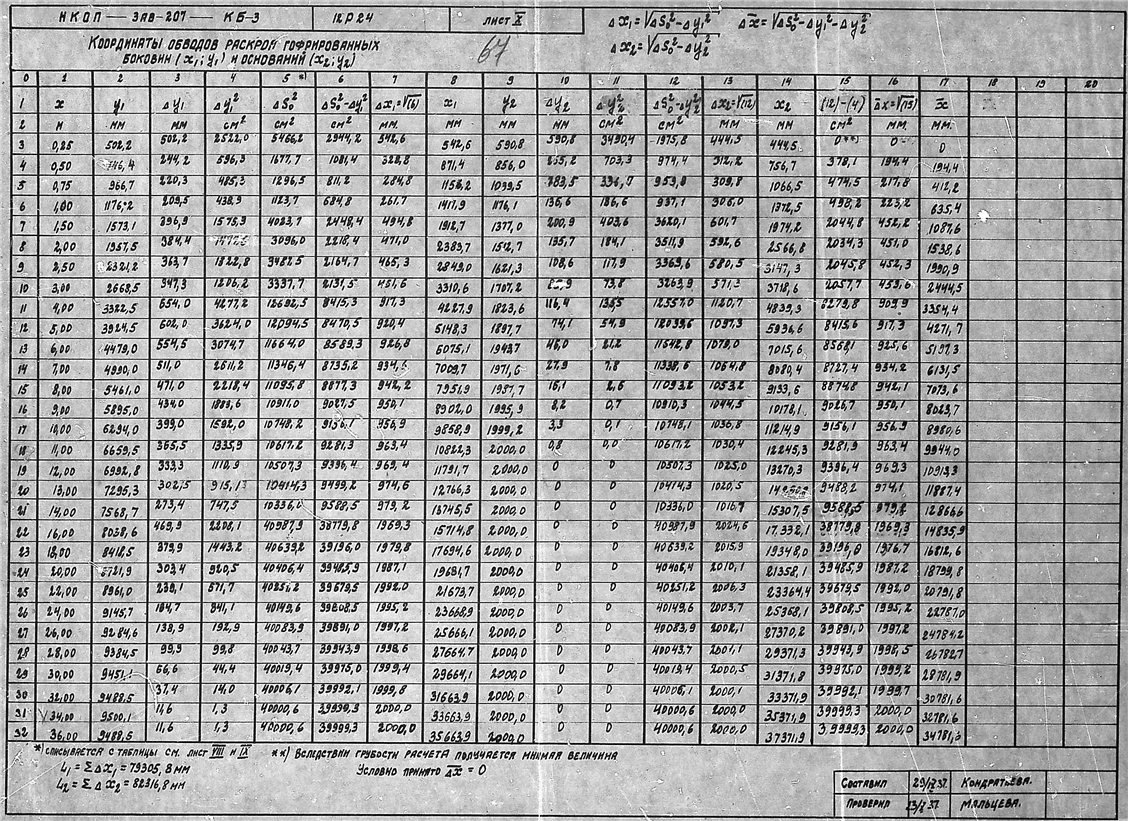 НКОП — ЗАВ-207 — КБ-3 12Р24 ЛИСТ X
67
Δx₁=√ΔS₀²-Δy₁² Δx̄=√ΔS₀²-Δy₁²-Δy₂²
Δx₂=√ΔS₀²-Δy₂²
КООРДИНАТЫ ОБВОДОВ РАСКРОЯ ГОФРИРОВАННЫХ
БОКОВИН (x₁; y₁) И ОСНОВАНИЙ (x₂; y₂)
0 1 2 3 4 5 *) 6 7 8 9 10 11 12 13 14 15 16 17 18 19 20
1 x y₁ Δy₁ Δy₁² ΔS₀² ΔS₀²-Δy₁² Δx₁=√(6) x₁ y₂ Δy₂ Δy₂² ΔS₀²-Δy₂² Δx₂=√(12) x₂ (12)-(4) Δx̄=√(15) x̄
2 М ММ ММ СМ² СМ² СМ² ММ. ММ ММ ММ СМ² СМ² ММ ММ СМ² ММ. ММ.
3 0,25 502,2 502,2 2522,0 5466,2 2944,2 542,6 542,6 590,8 590,8 3490,4 1975,8 444,5 444,5 0**) 0 0
4 0,50 746,4 244,2 596,3 1677,7 1081,4 328,8 871,4 856,0 703,3 974,4 312,2 756,7 378,1 194,4 194,4
5 0,75 966,7 220,3 485,3 1296,5 811,2 284,8 1156,2 1039,5 959,8 309,8 1066,5 474,5 217,8 412,2
6 1,00 1176,2 209,5 438,9 1123,7 684,8 261,7 1417,9 1176,1 136,6 186,6 937,1 306,0 1372,5 498,2 223,2 635,4
7 1,50 1573,1 396,9 1575,3 4023,7 2448,4 494,8 1912,7 1377,0 200,9 403,6 3620,1 601,7 1974,2 2044,8 452,2 1087,6
8 2,00 1957,5 384,4 3096,0 2218,4 471,0 2383,7 1512,7 135,7 184,1 3511,9 592,6 2566,8 2034,3 451,0 1538,6
9 2,50 2321,2 363,7 1322,8 3487,5 2164,7 465,3 2849,0 1621,3 108,6 117,9 3369,6 580,5 3147,3 2045,8 452,3 1990,9
10 3,00 2668,5 347,3 1206,2 3337,7 2131,5 461,6 3310,6 1707,2 73,8 3263,9 571,3 3718,6 2057,7 453,6 2444,5
11 4,00 3322,5 654,0 4277,2 12692,5 8415,3 917,3 4227,9 1823,6 116,4 135,5 12557,0 1120,7 4839,3 8279,8 909,9 3354,4
12 5,00 3924,5 602,0 3624,0 12094,5 8470,5 920,4 5148,3 1897,7 74,1 54,9 12039,6 1097,3 5936,6 8415,6 917,3 4271,7
13 6,00 4479,0 554,5 3074,7 11664,0 8589,3 926,8 6075,1 1943,7 46,0 21,2 11642,8 1079,0 7015,6 8568,1 925,6 5197,3
14 7,00 4990,0 511,0 2611,2 11346,4 8735,2 934,6 7009,7 1971,6 27,9 7,8 11338,6 1064,8 8080,4 8727,4 934,2 6131,5
15 8,00 5461,0 471,0 2218,4 11095,8 8877,3 942,2 7951,9 1987,7 16,1 2,6 11093,2 1053,2 9133,6 8874,8 942,1 7073,6
16 9,00 5895,0 434,0 1883,6 10911,0 9027,5 950,1 8902,0 1995,9 8,2 0,7 10910,3 1044,5 10178,1 9026,7 950,1 8023,7
17 10,00 6294,0 399,0 1592,0 10748,2 9156,1 956,9 9858,9 1999,2 3,3 0,1 10748,1 1036,8 11214,9 9156,1 956,9 8980,6
18 11,00 6659,5 365,5 1335,9 10617,2 9281,3 963,4 10822,3 2000,0 0,8 0,0 10617,2 1030,4 12245,3 9281,9 963,4 9944,0
19 12,00 6992,8 333,3 1110,9 10507,3 9396,4 969,4 11791,7 2000,0 0 0 10507,3 1025,0 13270,3 9396,4 969,3 10913,3
20 13,00 7295,3 302,5 915,1 10414,3 9499,2 974,6 12766,3 2000,0 0 0 10414,3 1020,5 9488,2 974,1 11887,4
21 14,00 7568,7 273,4 747,5 10336,0 9588,5 979,2 13745,5 2000,0 0 0 10336,0 1016,7 15307,5 9588,5 979,2 12866,6
22 16,00 8038,6 469,9 2208,1 40987,9 38779,8 1969,3 15714,8 2000,0 0 0 40987,9 2024,6 17332,1 38779,8 1969,3 14835,9
23 18,00 8418,5 379,9 1443,2 40639,2 39196,0 1979,8 17694,6 2000,0 0 0 40639,2 2015,9 19348,0 39196,0 1976,7 16812,6
24 20,00 8721,9 303,4 920,5 40406,4 39485,9 1987,1 19681,7 2000,0 0 0 40406,4 2010,1 21358,1 39485,9 1987,2 18799,8
25 22,00 8961,0 239,1 571,7 40251,2 39679,5 1992,0 21673,7 2000,0 0 0 40251,2 2006,3 23364,4 39679,5 1992,0 20791,8
26 24,00 9145,7 184,7 341,1 40149,6 39808,5 1995,2 23668,9 2000,0 0 0 40149,6 2003,7 25368,1 39808,5 1995,2 22787,0
27 26,00 9284,6 138,9 192,9 40083,9 39891,0 1997,2 25666,1 2000,0 0 0 40083,9 2002,1 27370,2 39891,0 1997,2 24784,2
28 28,00 9384,5 99,9 99,8 40043,7 39943,9 1998,6 27664,7 2000,0 0 0 40043,7 2001,1 29371,3 39943,9 1998,5 26782,7
29 30,00 9451,1 66,6 44,4 40019,4 39975,0 1999,4 29664,1 2000,0 0 0 40019,4 2000,5 31371,8 39975,0 1999,2 28781,9
30 32,00 9488,5 37,4 14,0 40006,1 39992,1 1999,8 31663,9 2000,0 0 0 40006,1 2000,1 33371,9 39992,1 1999,7 30781,6
31 34,00 9500,1 11,6 1,3 40000,6 39999,3 2000,0 33663,9 2000,0 0 0 40000,6 2000,0 35371,9 39999,3 2000,0 32781,6
32 36,00 9488,5 11,6 1,3 40000,6 39999,3 2000,0 35663,9 2000,0 0 0 40000,6 2000,0 37371,9 39999,3 2000,0 34781,3
*) СПИСЫВАЕТСЯ С ТАБЛИЦЫ СМ. ЛИСТ VIII И IX **) ВСЛЕДСТВИИ ГРУБОСТИ РАСЧЕТА ПОЛУЧАЕТСЯ МНИМАЯ ВЕЛИЧИНА
L₁ = ΣΔx₁ = 79305,8 мм УСЛОВНО ПРИНЯТО Δx̄ = 0
L₂ = ΣΔx₂ = 82316,8 мм
СОСТАВИЛ КОНДРАТЬЕВА.
ПРОВЕРИЛ МАЛЬЦЕВА.